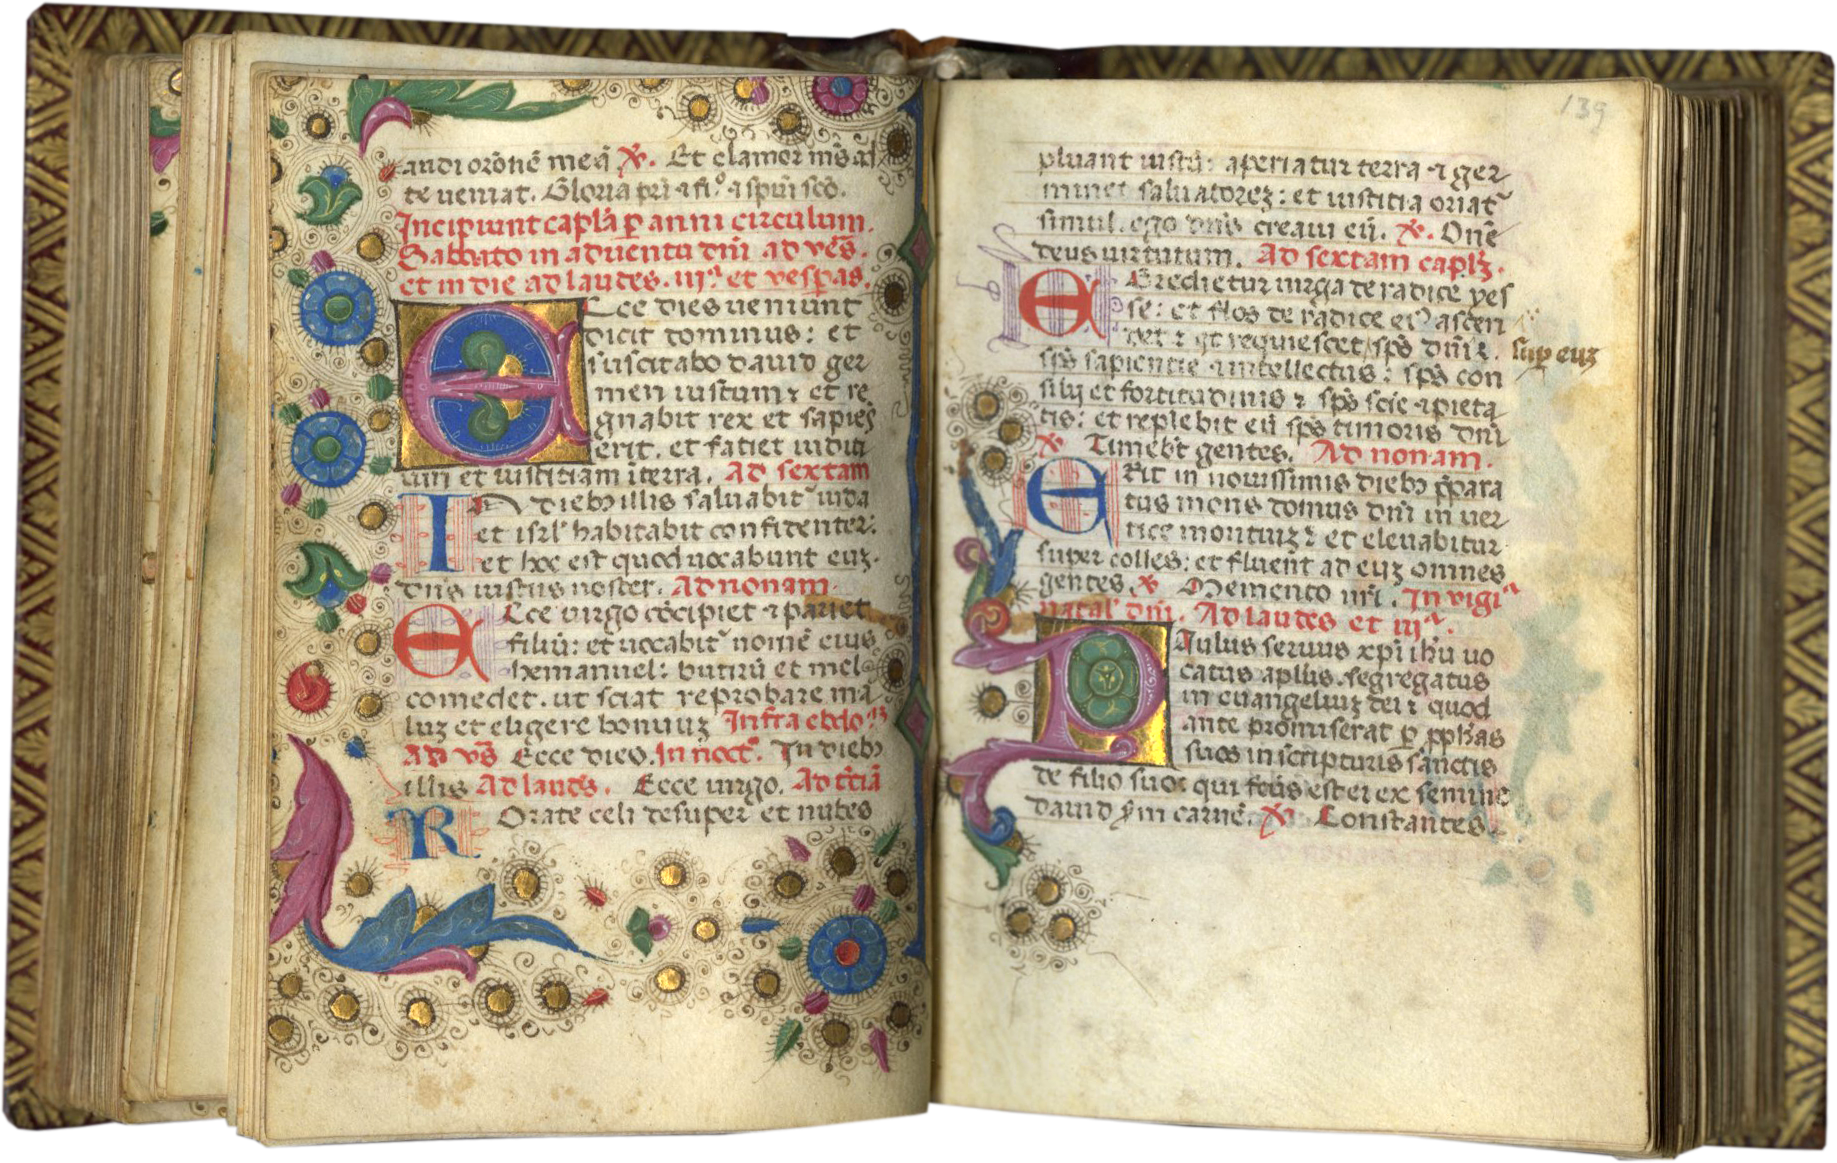 audi orōnē meā ℣. Et clamor m̄s ad
te veniat. Gloria pri ⁊ fiº ⁊ spūi scō.
Incipiunt capl'a p anni circulum.
Sabbato in adventu dn̄i ad vēs.
et in die ad laudes. iijª et vesperas.
Ecce dies veniunt
dicit dominus: et
suscitabo david ger
men iustumꝫ et re
gnabit rex et sapiēs
erit. et faciet iudici
um et iusticiam ī terra. Ad sextam
In diebꝫ illis salvabit' iuda
et isrl' habitabit confidenter:
et hoc est quod vocabunt euꝫ.
dn̄s iustus noster. Ad nonam.
Ecce virgo cōcipiet ⁊ pariet
filiū: et vocabit' nomē eius
hemanuel: butirū et mel
comedet. ut sciat reprobare ma
luꝫ et eligere bonuuꝫ Infra ebdoª
Ad vs̄ Ecce dies. In noctº. In diebꝫ
illis Ad laud's. Ecce virgo. Ad t'ciā
Rorate celi desuper et nubes
139
pluant iustū: aperiatur terra ⁊ ger
minet salvatoreꝫ: et iusticia oriat'
simul. ego dn̄s creavi eū. ℣. Dn̄e
deus virtutum. Ad sextam caplꝫ.
Egredietur virga de radice yes
se: et flos de radice eiꝰ ascen
det ⁊ et requiescet sps̄ dn̄i ⁊.
sup euꝫ
sps̄ sapientie ⁊ intellectus: sps̄ con
silij et fortitudinis ⁊ sps̄ scie ⁊ pieta
tis: et replebit eū sps̄ timoris dn̄i
℣ Timeb't gentes. Ad nonam.
Erit in novissimis diebꝫ p̄para
tus mons domus dn̄i in ver
tice montiuꝫ ⁊ et elevabitur
super colles: et fluent ad euꝫ omnes
gentes ℣ Memento nr̄i. In vigiª
natal' dn̄i. Ad laudes et iijª.
Paulus servus xpi ihū vo
catus aplūs. segregatus
in evangeliuꝫ dei ⁊ quod
ante promiserat p pphetas
suos in scripturis sanctis
de filio suo: qui fc̄us est ei ex semine
david ẜm carnē. ℣ Constantes.